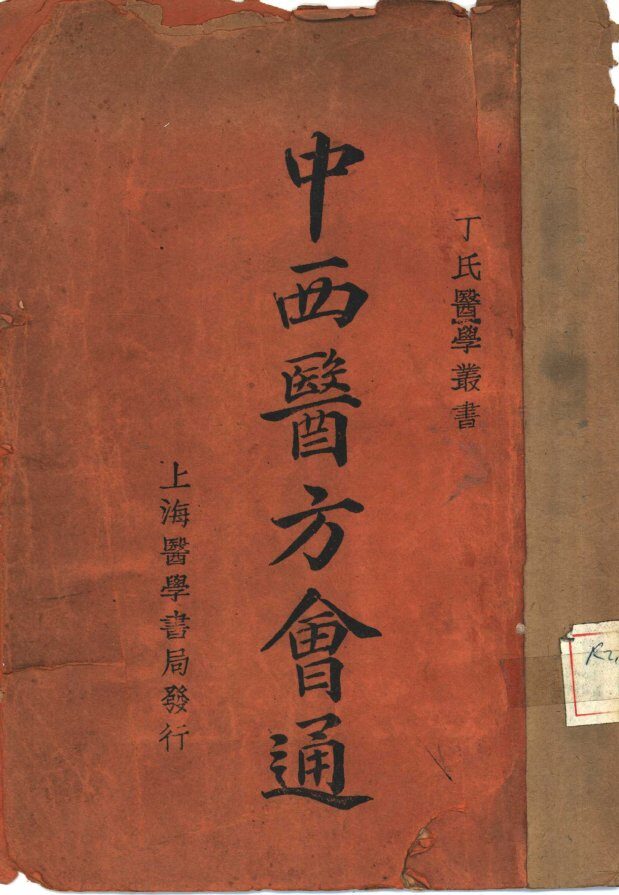 丁氏醫學叢書
中西醫方會通
上海醫學書局發行